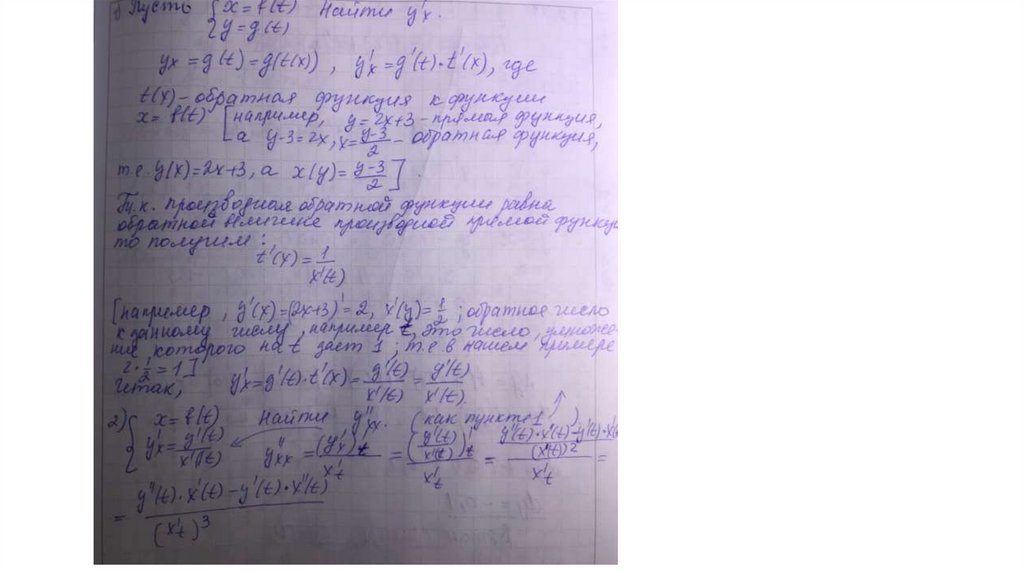 1) Пусть { x = f(t) Найти y'x.
y = g(t)
yx = g(t) = g(t(x)), y'x = g'(t)·t'(x), где
t(x) – обратная функция к функции
x = f(t) [например, y = 2x+3 – прямая функция,
а y-3 = 2x, x = (y-3)/2 – обратная функция,
т.е. y(x) = 2x+3, а x(y) = (y-3)/2].
Т.к. производная обратной функции равна
обратной величине производной прямой функци
то получим:
t'(x) = 1/x'(t)
[например, y'(x) = (2x+3)' = 2, x'(y) = 1/2; обратное число
к данному числу, например t, это число, умноже-
ние которого на t дает 1; т.е в нашем примере
2·1/2 = 1]
Итак, y'x = g'(t)·t'(x) = g'(t)/x'(t) = y'(t)/x'(t).
2) { x = f(t) Найти y''xx. (как пункте 1)
y'x = y'(t)/x'(t) y''xx = (y'x)'t/x't = (y'(t)/x'(t))'t/x't = (y''(t)·x'(t) – y'(t)·x''(t))/(x'(t))²/x't =
= (y''(t)·x'(t) – y'(t)·x''(t))/(x't)³